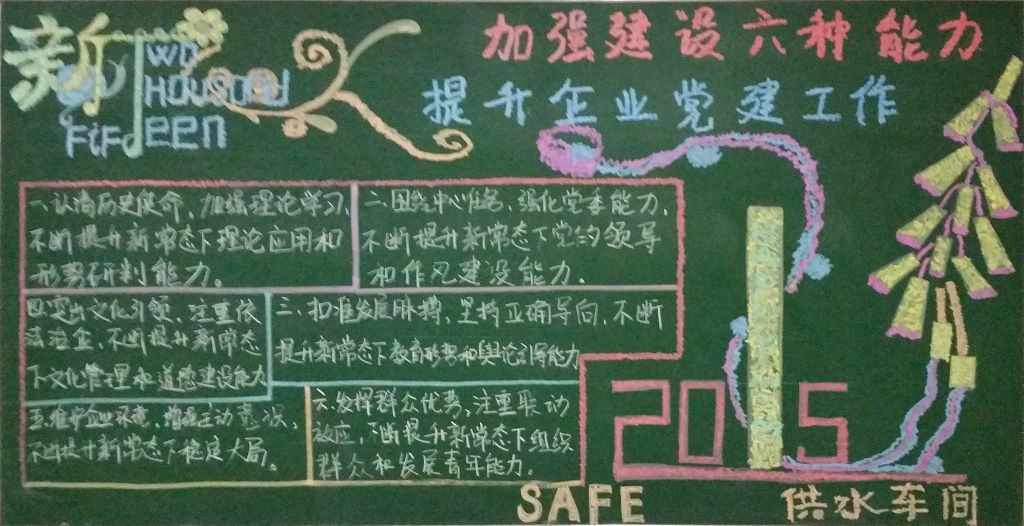 新
TWO
THOUSAND
FIFTEEN
加强建设六种能力
提升企业党建工作
一、认清历史使命、加强理论学习、
不断提升新常态下理论应用和
形势研判能力。
二、围绕中心任务、强化党委能力、
不断提升新常态下党的领导
和作风建设能力。
四、突出文化引领、注重依
法治企、不断提升新常态
下文化管理和道德建设能力
三、扣准发展脉搏、坚持正确导向、不断
提升新常态下教育形势和舆论引导能力
五、维护企业环境、增强主动意识、
不断提升新常态下稳定大局。
六、发挥群众优势、注重联动
效应、不断提升新常态下组织
群众和发展青年能力。
2015
SAFE
供水车间